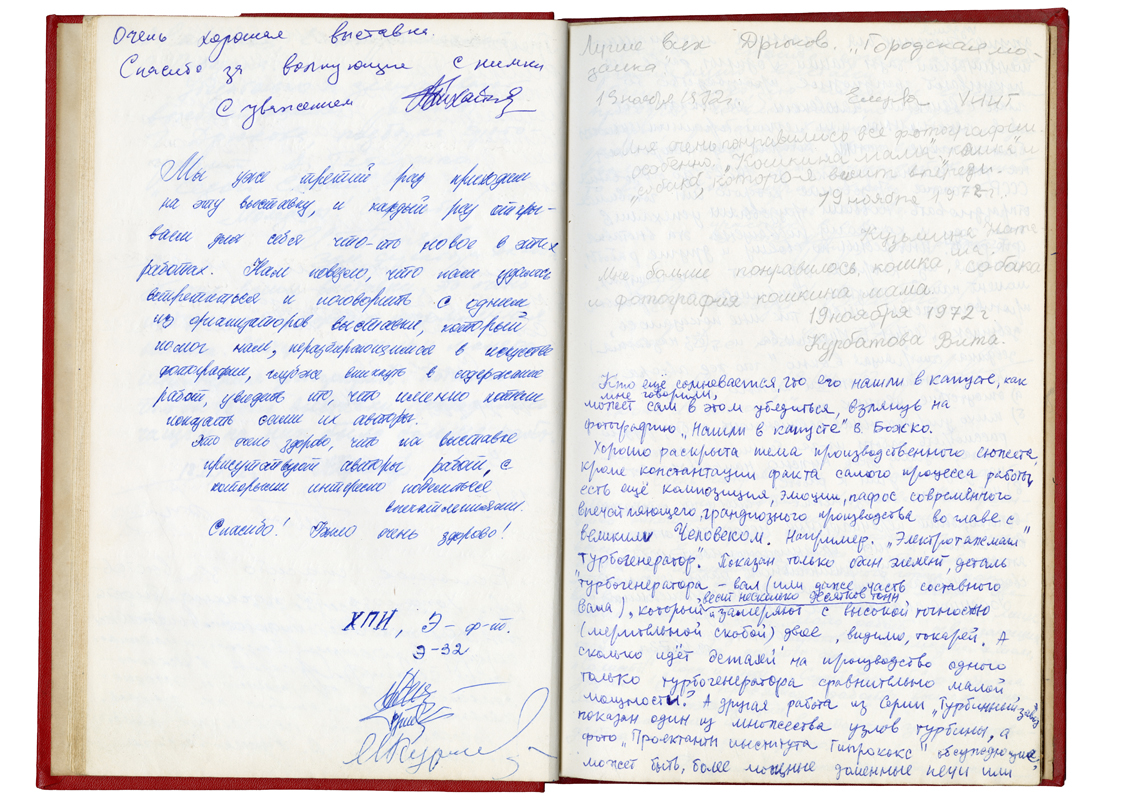 Очень хорошая выставка.
Спасибо за волнующие снимки
С уважением
Мы уже третий раз приходим
на эту выставку, и каждый раз откры-
ваем для себя что-то новое в этих
работах. Нам повезло, что нам удалось
встретиться и поговорить с одним
из организаторов выставки, который
помог нам, неразбирающимся в искусстве
фотографии, глубже вникнуть в содержание
работ, увидеть то, что именно хотели
показать сами их авторы.
Это очень здорово, что на выставке
присутствуют авторы работ, с
которыми интересно поделиться
впечатлениями.
Спасибо! Было очень здорово!
ХПИ, Э-ф-т.
Э-32
Лучше всех Дрюков. „Городская мо-
заика"
19 ноября 1972г.
Мне очень понравилось все фотографии.
особенно „Кошкина мама" „кошка" и
„собака", которая висит впереди.
19 ноября 1972г.
Кузьмина Ната
ша.
Мне больше понравилось кошка, собака
и фотография кошкина мама.
19 ноября 1972 г
Курбатова Вита.
Кто ещё сомневается, что его нашли в капусте, как
мне говорили,
может сам в этом убедиться, взглянув на
фотографию „Нашли в капусте" В. Божко.
Хорошо раскрыта тема производственного сюжета,
кроме констатации факта самого процесса работы
есть ещё композиция, эмоции, пафос современного
впечатляющего, грандиозного производства во главе с
великим Человеком. Например. „Электротяжмаш"
турбогенератор". Показан только один элемент, деталь
"турбогенератора - вал (или даже часть составного
весит несколько десятков тонн
вала), который и замеряют с высокой точностью
(мерительной скобой) двое, видимо, токарей. А
сколько идёт деталей на производство одного
только турбогенератора сравнительно малой
мощности? А другая работа из Серии „Турбинный завод"
показан один из множества узлов турбины, а
фото „Проектанты института Гипрококс" обсуждающие,
может быть, более мощные доменные печи или